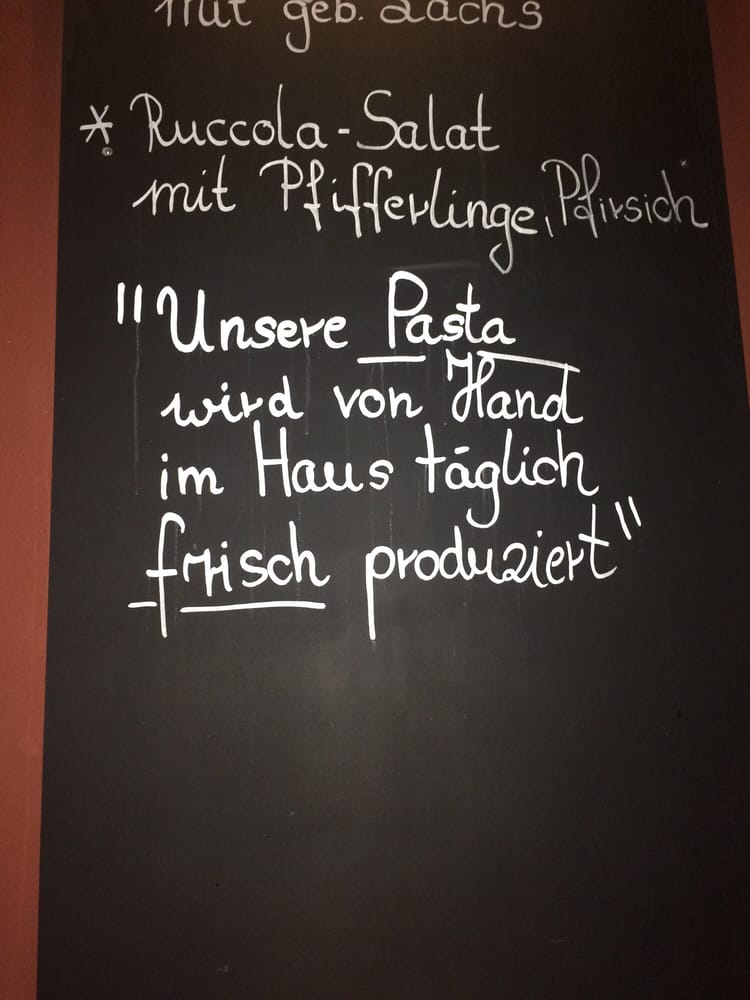 mit geb. Lachs
* Ruccola-Salat
mit Pfifferlinge, Pfirsich
"Unsere Pasta
wird von Hand
im Haus täglich
frisch produziert"